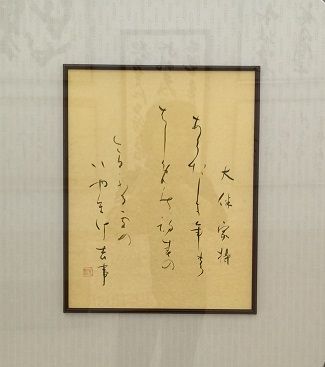 大伴家持
あらたしき年の
はしめの初春の
けふふる雪の
いやしけ吉事